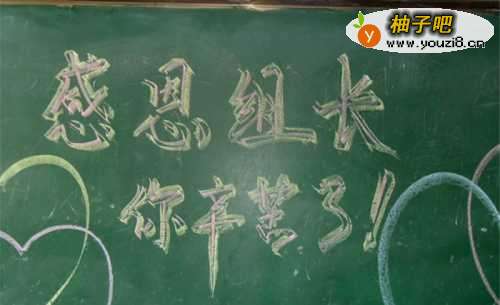 柚子吧
www.youzi8.cn
感恩组长
你辛苦了!